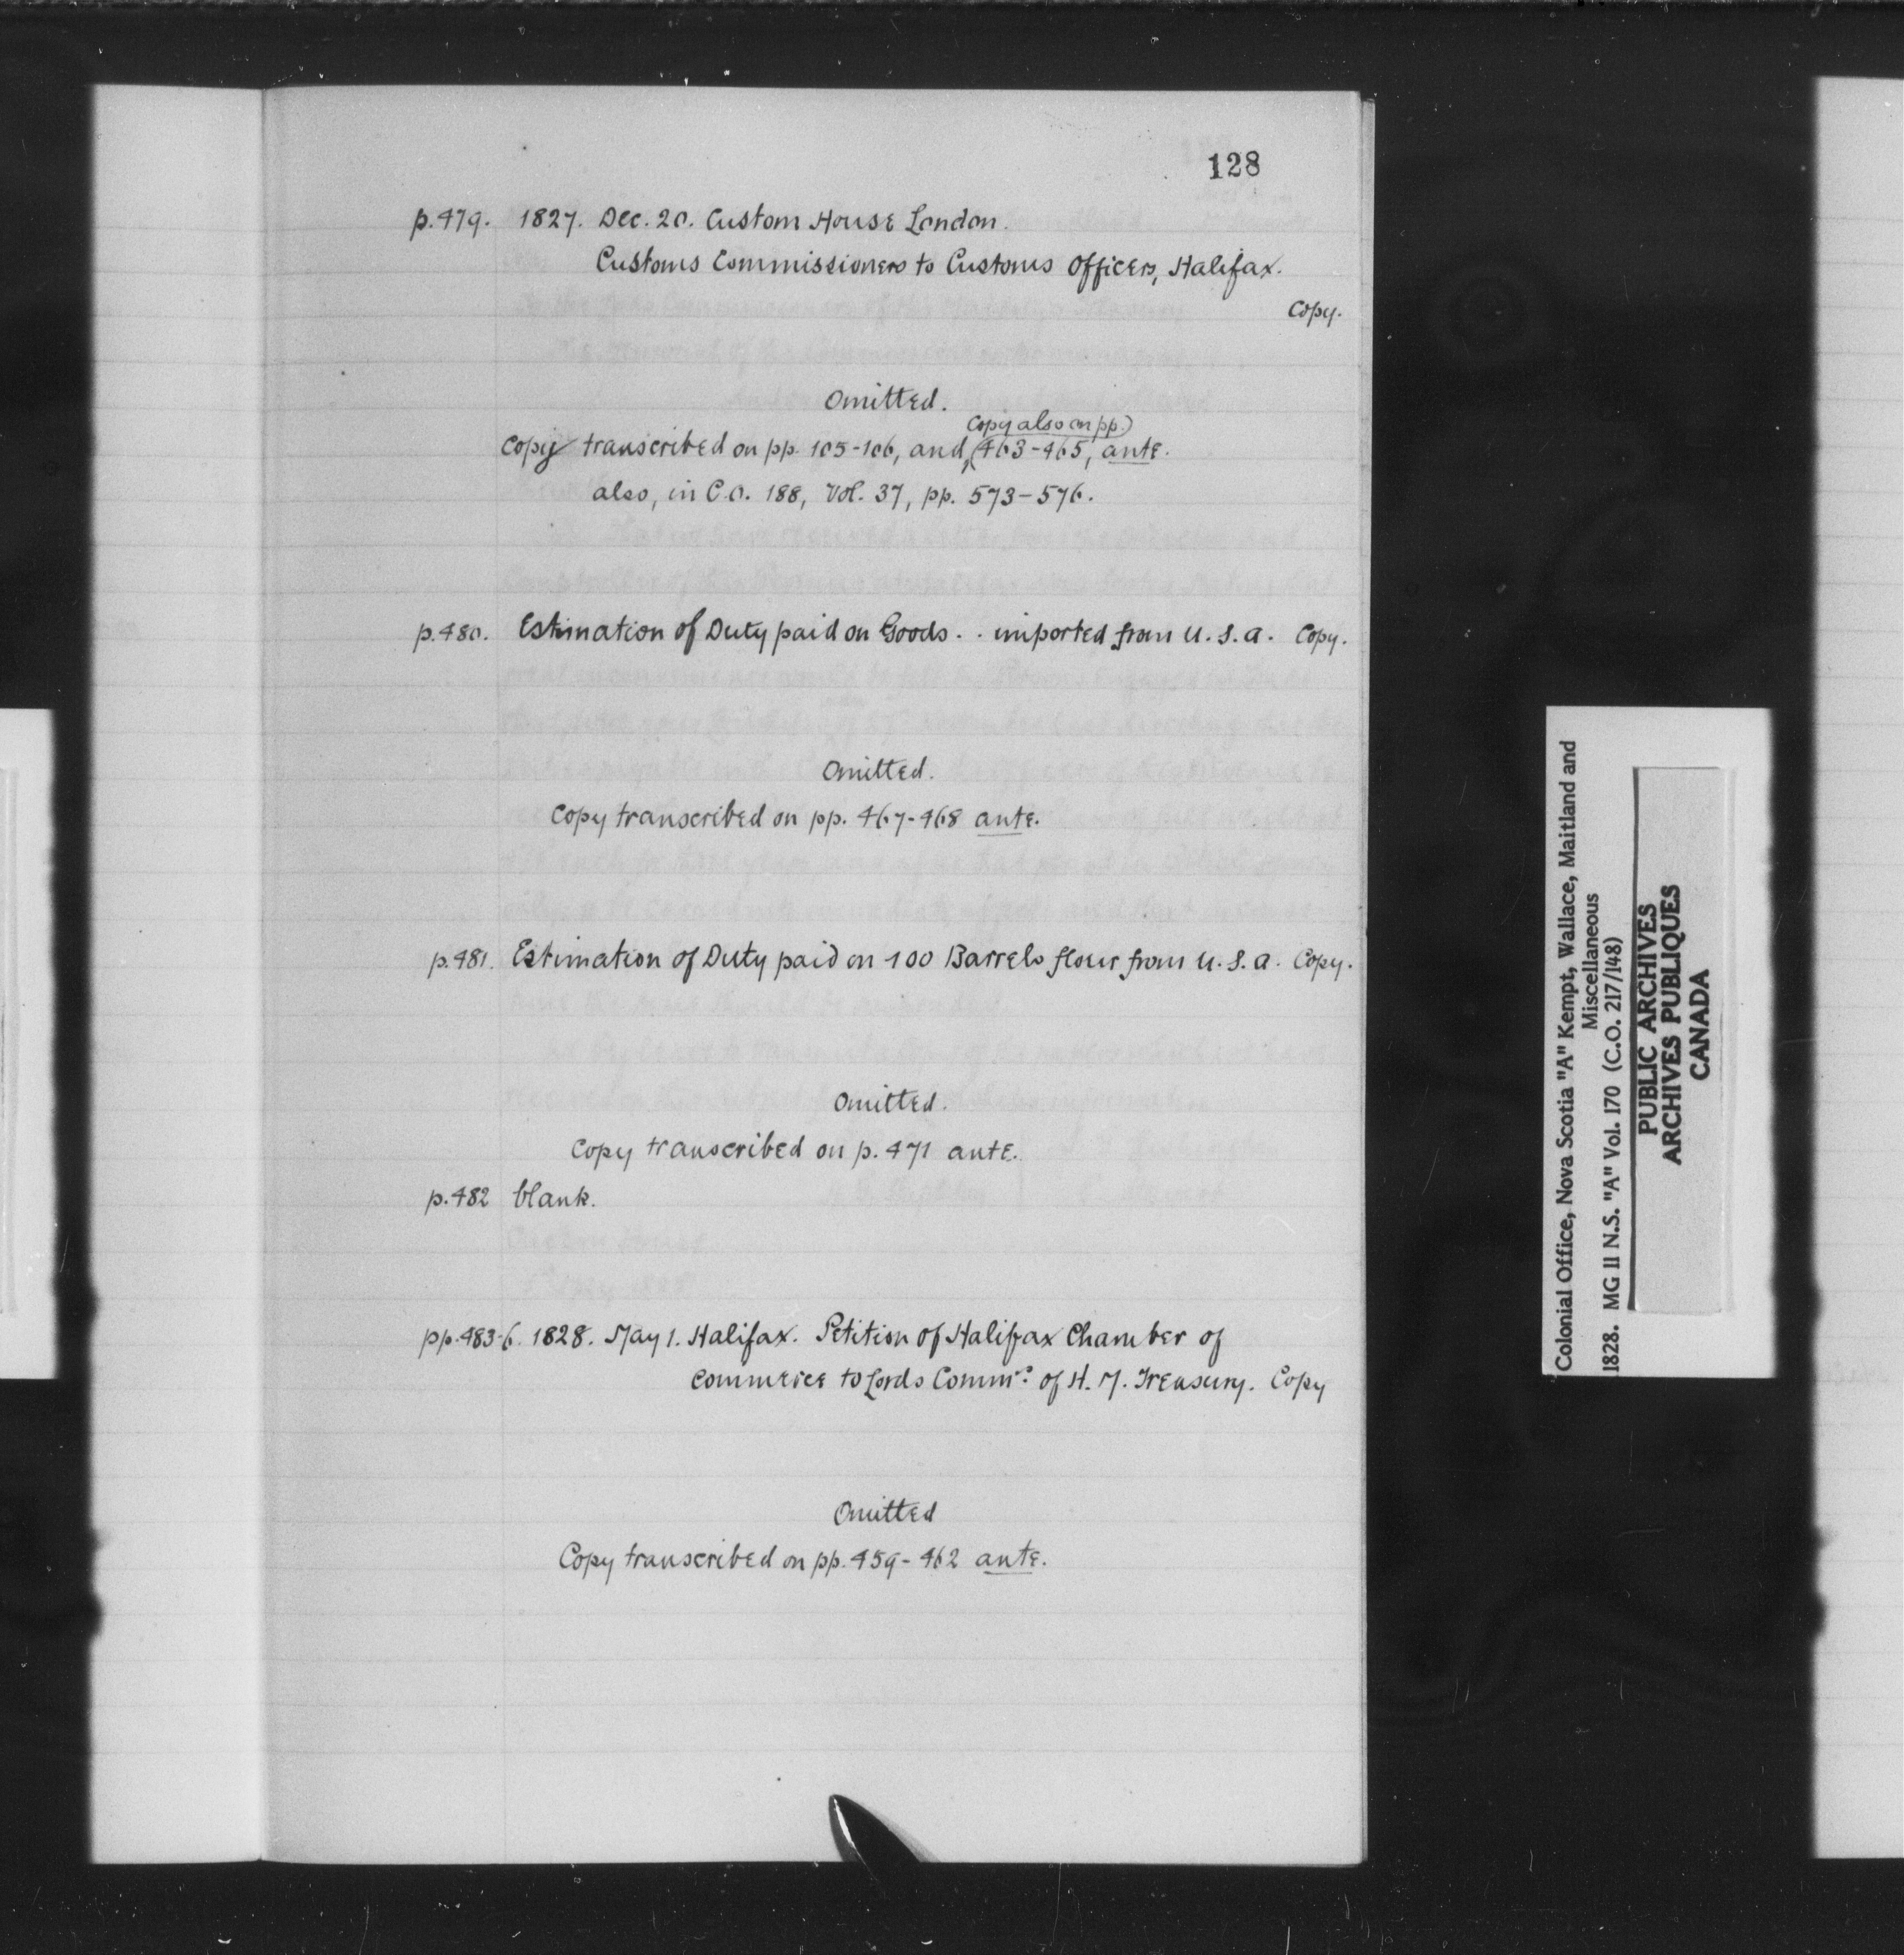 128
p.479. 1827. Dec. 20. Custom House London.
Customs Commissioners to Customs Officers, Halifax.
Copy.
Omitted.
Copy also on pp.
Copy transcribed on pp. 105-106, and, 463-465, ante.
also, in C.O. 188, Vol. 37, pp. 573-576.
p.480. Estimation of Duty paid on Goods . . imported from U.S.A. Copy.
Omitted.
Copy transcribed on pp. 467-468 ante.
p.481. Estimation of Duty paid on 100 Barrels flour from U.S.A. Copy.
Omitted.
Copy transcribed on p. 471 ante.
p.482 blank.
pp.483-6. 1828. May 1. Halifax. Petition of Halifax Chamber of
Commerce to Lords Commrs. of H. M. Treasury. Copy
Omitted
Copy transcribed on pp. 459-462 ante.
Colonial Office, Nova Scotia "A" Kempt, Wallace, Maitland and
Miscellaneous
1828. MG 11 N.S. "A" Vol. 170 (C.O. 217/148)
PUBLIC ARCHIVES
ARCHIVES PUBLIQUES
CANADA